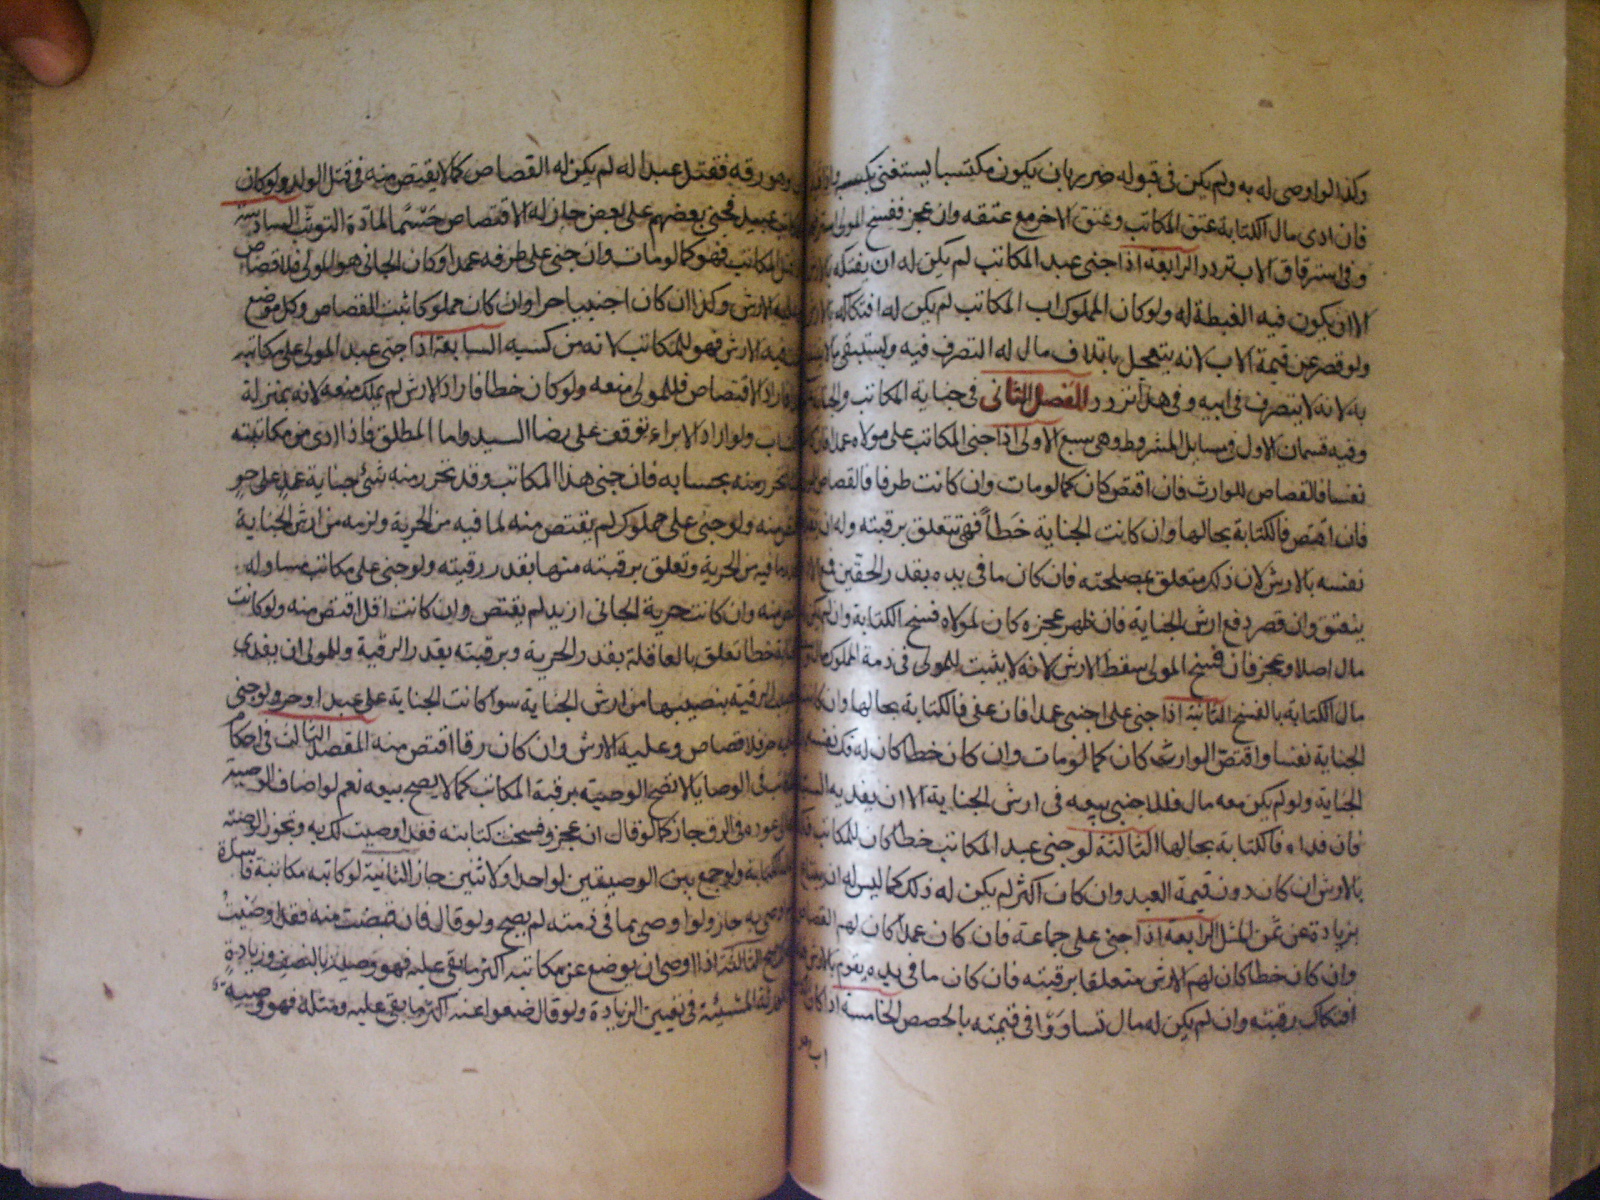 وكذا لو اوصى له به ولم يكن في قبوله ضرر بان يكون مكتسبا يستغني بكسبه
فان ادى مال الكتابة عتق المكاتب وعتق الاخر مع عتقه وان عجز ففسخ المولى
وفي استرقاق الاب تردد الرابعة اذا جنى عبد المكاتب لم يكن له ان يفتكه
الا ان يكون فيه الغبطة له ولو كان المملوك اب المكاتب لم يكن له افتكاكه
ولو قصر عن قيمة الاب لانه يتعجل باتلاف مال له التصرف فيه ويستبقي
به لانه لا يتصرف في ابيه وفي هذا تردد الفصل الثاني في جناية المكاتب
وفيه قسمان الاول في مسايل المشروط وهي سبع الاولى اذا جنى المكاتب على مولاه عمدا
نفسا فالقصاص للوارث فان اقتص كان كما لو مات وان كانت طرفا فالقصاص
فان اقتص فالكتابة بحالها وان كانت الجناية خطأ فهي تتعلق برقبته وله ان
نفسه بالارش لان ذلك متعلق بمصلحته فان كان ما في يده بقدر الحقين
ينعتق وان قصر دفع ارش الجناية فان ظهر عجزه كان لمولاه فسخ الكتابة
مال اصلا وعجز فان فسخ المولى سقط الارش لانه لا يثبت للمولى في ذمة المملوك
مال الكتابة بالفسخ الثانية اذا جنى على اجنبي عمدا فان عفى فالكتابة بحالها وان
الجناية نفسا واقتص الوارث كان كما لو مات وان كان خطا كان له فك نفسه
الجناية ولو لم يكن معه مال فللاجنبي بيعه في ارش الجناية الا ان يفديه
فان فداه فالكتابة بحالها الثالثة لو جنى عبد المكاتب خطا كان للمكاتب
بالارش ان كان دون قيمة العبد وان كان اكثر لم يكن له ذلك كما ليس له ان
بزيادة عن ثمن المثل الرابعة اذا جنى على جماعة فان كان عمدا كان لهم القصاص
وان كان خطا كان لهم الارش متعلقا برقبته فان كان ما في يده يقوم
افتكاك رقبته وان لم يكن له مال تساووا في قيمته بالحصص الخامسة اذا كان
وهو رقه فقتل عبدا له لم يكن له القصاص كما لا يقتص منه في قتل الولد ولو كان
عبيد فجنى بعضهم على بعض جاز له الاقتصاص حسما لمادة التوثب السادسة
المكاتب فهو كما لو مات وان جنى على طرفه عمدا وكان الجاني هو المولى فلا قصاص
الارش وكذا ان كان اجنبيا حرا وان كان مملوكا ثبت القصاص وكل موضع
فيه الارش فهو للمكاتب لانه من كسبه السابعة اذا جنى عبد المولى على مكاتبه
فاراد الاقتصاص فللمولى منعه ولو كان خطا فاراد الارش لم يملك منعه لانه بمنزلة
ولو اراد الابراء توقف على رضا السيد واما المطلق فاذا ادى من مكاتبته
تحرر منه بحسابه فان جنى هذا المكاتب وقد تحرر منه شئ جناية عمد على حر
منه ولو جنى على مملوك لم يقتص منه لما فيه من الحرية ولزمه من ارش الجناية
ما فيه من الحرية وتعلق برقبته منها بقدر رقيته ولو جنى على مكاتب مساو له
منه وان كانت حرية الجاني ازيد لم يقتص وان كانت اقل اقتص منه ولو كانت
خطا تعلق بالعاقلة بقدر الحرية وبرقبته بقدر الرقية وللمولى ان يفدي
الرقية بنصيبها من ارش الجناية سوا كانت الجناية على عبد او حر ولو جنى
حر فلا قصاص وعليه الارش وان كان رقا اقتص منه المقصد الثالث في احكام
في الوصايا لا تصح الوصية برقبة المكاتب كما لا يصح بيعه نعم لو اضاف الوصية
عوده في الرق جاز كما لو قال ان عجز وفسخت كتابته فقد اوصيت لك به وتجوز الوصية
ولو جمع بين الوصيتين لواحد او لاثنين جاز الثانية لو كاتبه مكاتبة فاسدة
اوصى به جاز ولو اوصى بما في ذمته لم يصح ولو قال فان قبضت منه فقد اوصيت
الثالثة اذا اوصى ان يوضع عن مكاتبه اكثر ما بقي عليه فهو وصية بالنصف وزيادة
المشيئة في تعيين الزيادة ولو قال ضعوا عنه اكثر ما بقي عليه ومثله فهو وصية